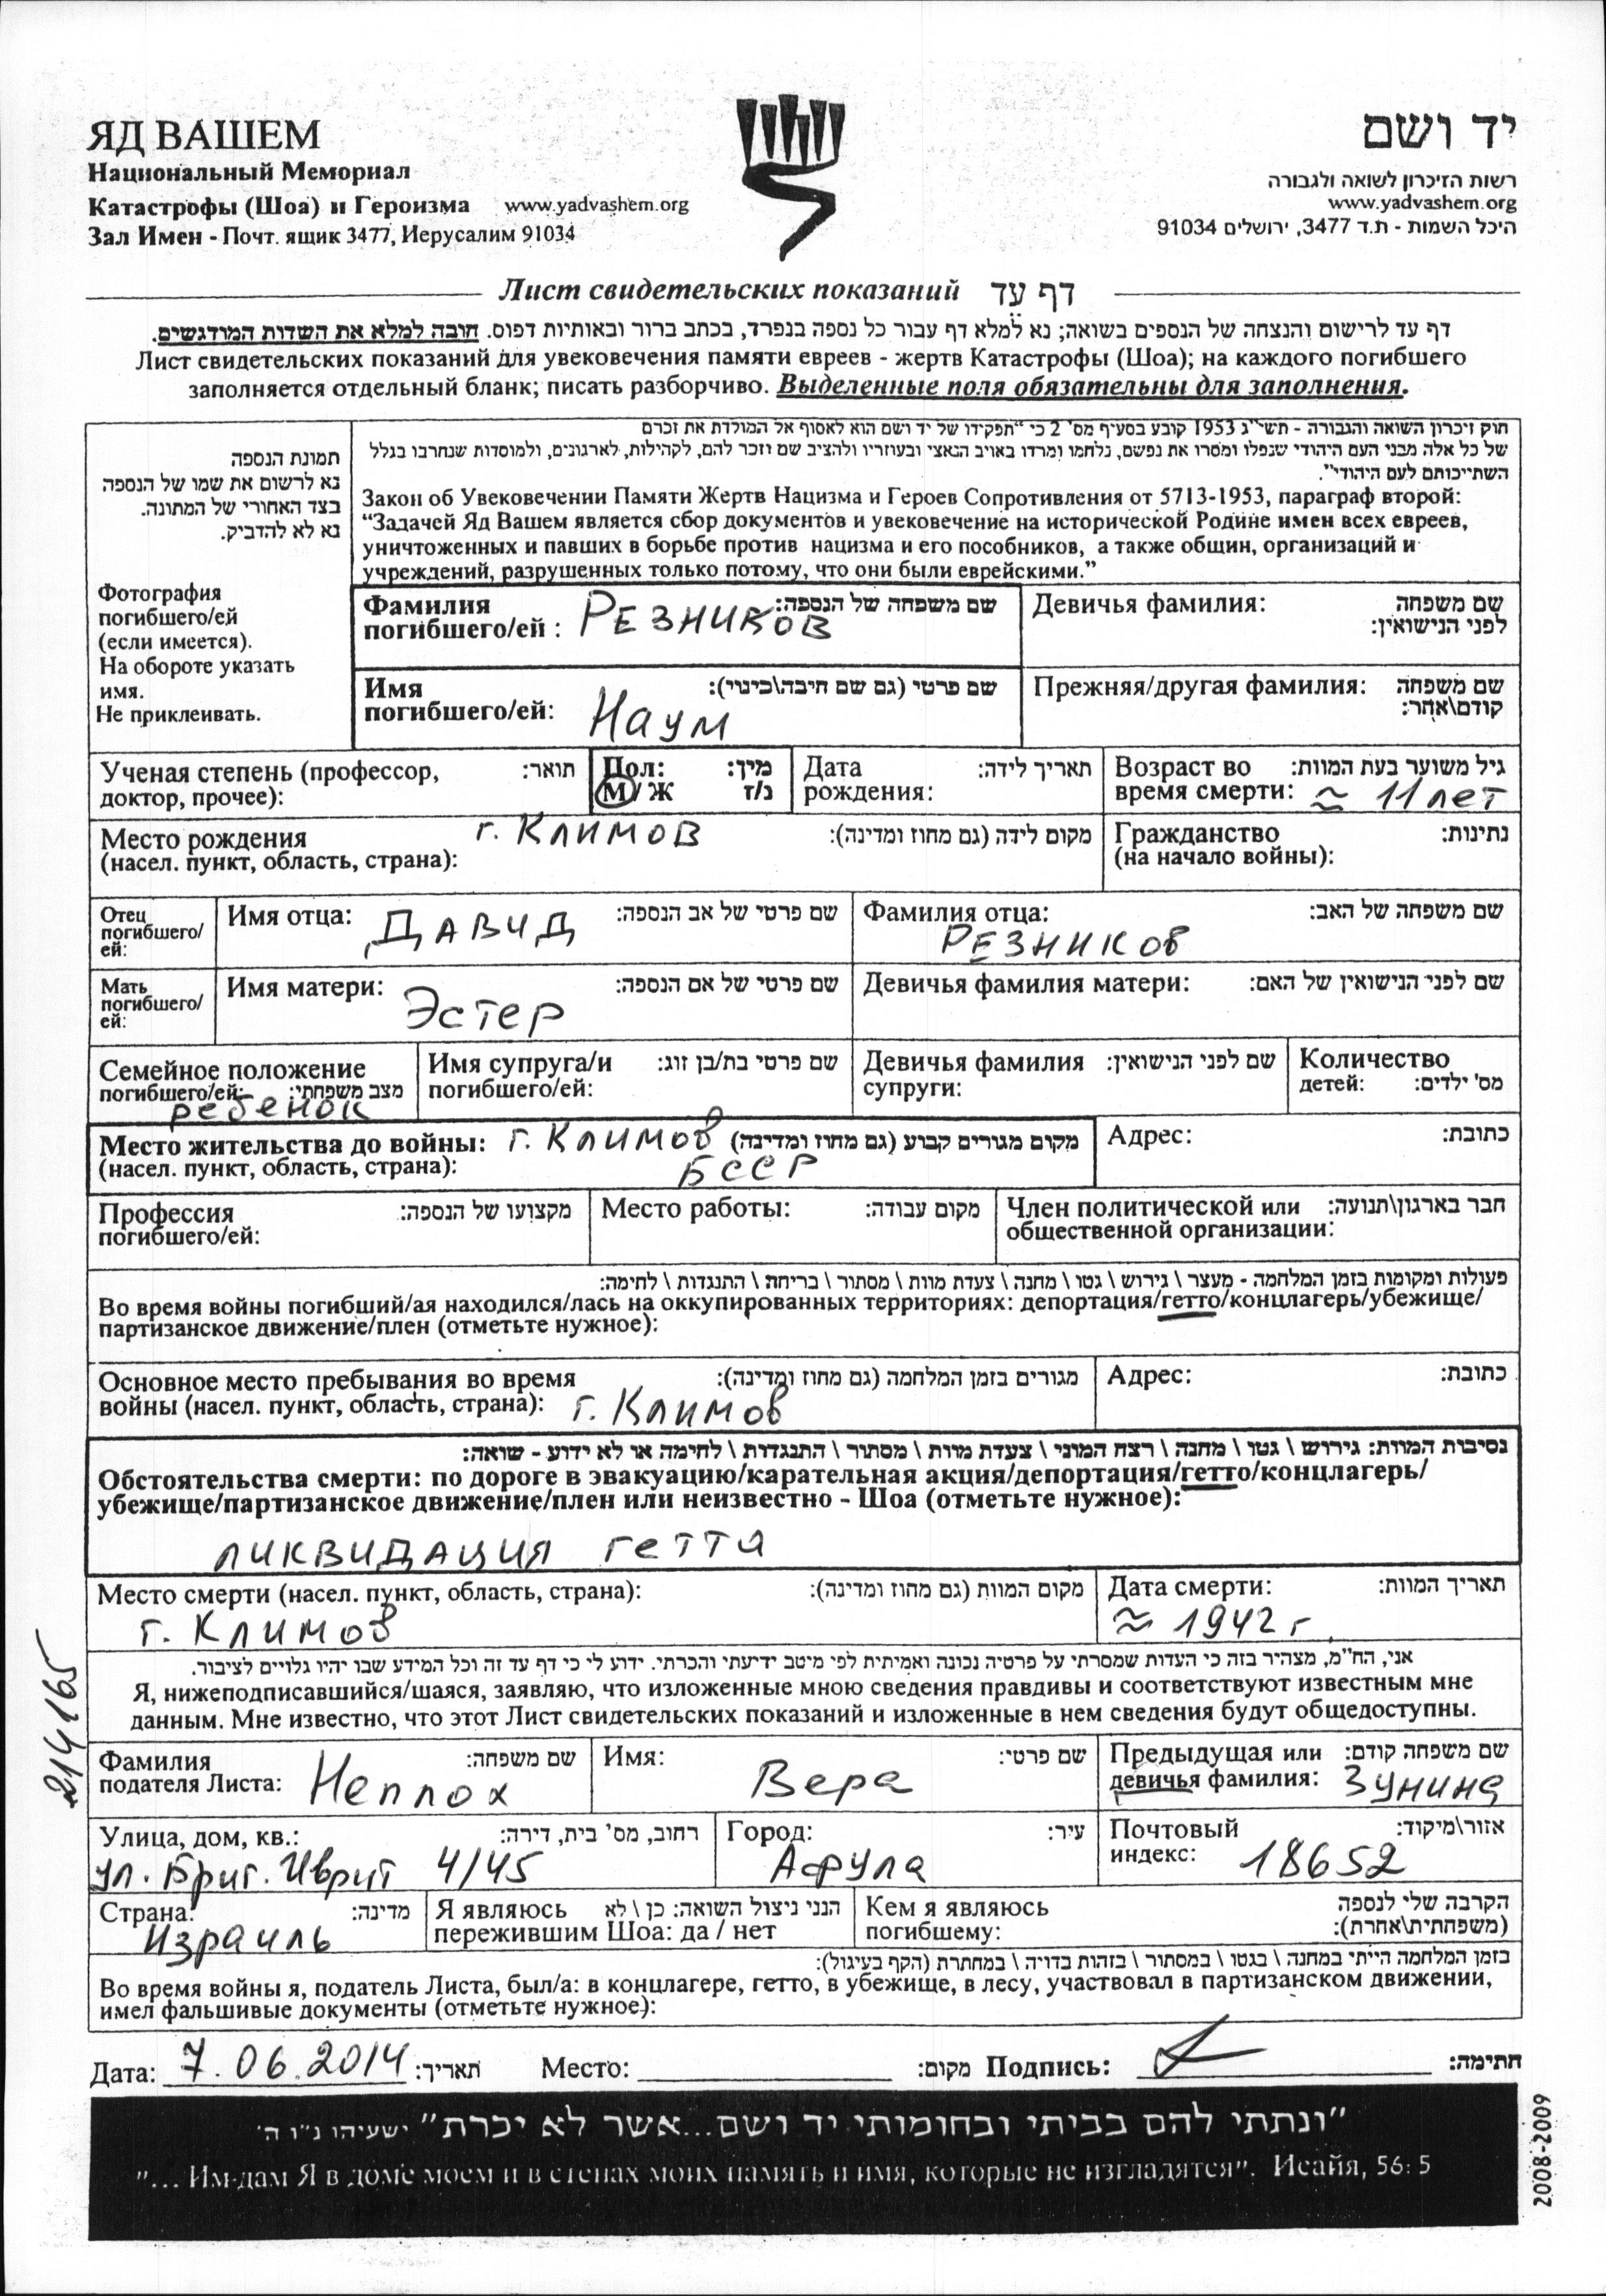 ЯД ВАШЕМ
Национальный Мемориал
Катастрофы (Шоа) и Героизма www.yadvashem.org
Зал Имен - Почт. ящик 3477, Иерусалим 91034
יד ושם
רשות הזיכרון לשואה ולגבורה
www.yadvashem.org
היכל השמות - ת.ד 3477, ירושלים 91034
Лист свидетельских показаний דף עֵד
דף עד לרישום והנצחה של הנספים בשואה; נא למלא דף עבור כל נספה בנפרד, בכתב ברור ובאותיות דפוס. חובה למלא את השדות המודגשים.
Лист свидетельских показаний для увековечения памяти евреев - жертв Катастрофы (Шоа); на каждого погибшего
заполняется отдельный бланк; писать разборчиво. Выделенные поля обязательны для заполнения.
תמונת הנספה
נא לרשום את שמו של הנספה
בצד האחורי של התמונה.
נא לא להדביק.
Фотография
погибшего/ей
(если имеется).
На обороте указать
имя.
Не приклеивать.
חוק זיכרון השואה והגבורה - תשי"ג 1953 קובע בסעיף מס' 2 כי "תפקידו של יד ושם הוא לאסוף אל המולדת את זכרם
של כל אלה מבני העם היהודי שנפלו ומסרו את נפשם, נלחמו ומרדו באויב הנאצי ובעוזריו ולהציב שם וזכר להם, לקהילות, לארגונים, ולמוסדות שנחרבו בגלל
השתייכותם לעם היהודי".
Закон об Увековечении Памяти Жертв Нацизма и Героев Сопротивления от 5713-1953, параграф второй:
“Задачей Яд Вашем является сбор документов и увековечение на исторической Родине имен всех евреев,
уничтоженных и павших в борьбе против нацизма и его пособников, а также общин, организаций и
учреждений, разрушенных только потому, что они были еврейскими.”
Фамилия погибшего/ей : РЕЗНИКОВ שם משפחה של הנספה:
Девичья фамилия: שם משפחה לפני הנישואין:
Имя погибшего/ей: Наум שם פרטי (גם שם חיבה\כינוי):
Прежняя/другая фамилия: שם משפחה קודם\אחר:
Ученая степень (профессор, доктор, прочее): תואר:
Пол: М / Ж מין: ז/נ
Дата рождения: תאריך לידה:
Возраст во время смерти: ≈ 11 лет גיל משוער בעת המוות:
Место рождения (насел. пункт, область, страна): г. Климов מקום לידה (גם מחוז ומדינה):
Гражданство (на начало войны): נתינות:
Отец погибшего/ей:
Имя отца: ДАВИД שם פרטי של אב הנספה:
Фамилия отца: РЕЗНИКОВ שם משפחה של האב:
Мать погибшего/ей:
Имя матери: Эстер שם פרטי של אם הנספה:
Девичья фамилия матери: שם לפני הנישואין של האם:
Семейное положение погибшего/ей: ребенок מצב משפחתי:
Имя супруга/и погибшего/ей: שם פרטי בת/בן זוג:
Девичья фамилия супруги: שם לפני הנישואין:
Количество детей: מס' ילדים:
Место жительства до войны: (насел. пункт, область, страна): г. Климов БССР מקום מגורים קבוע (גם מחוז ומדינה)
Адрес: כתובת:
Профессия погибшего/ей: מקצועו של הנספה:
Место работы: מקום עבודה:
Член политической или общественной организации: חבר בארגון\תנועה:
פעולות ומקומות בזמן המלחמה - מעצר \ גירוש \ גטו \ מחנה \ צעדת מוות \ מסתור \ בריחה \ התנגדות \ לחימה:
Во время войны погибший/ая находился/лась на оккупированных территориях: депортация/гетто/концлагерь/убежище/
партизанское движение/плен (отметьте нужное):
Основное место пребывания во время войны (насел. пункт, область, страна): г. Климов מגורים בזמן המלחמה (גם מחוז ומדינה):
Адрес: כתובת:
נסיבות המוות: גירוש \ גטו \ מחנה \ רצח המוני \ צעדת מוות \ מסתור \ התנגדות \ לחימה או לא ידוע - שואה:
Обстоятельства смерти: по дороге в эвакуацию/карательная акция/депортация/гетто/концлагерь/
убежище/партизанское движение/плен или неизвестно - Шоа (отметьте нужное):
ликвидация гетта
Место смерти (насел. пункт, область, страна): г. Климов מקום המוות (גם מחוז ומדינה):
Дата смерти: ≈ 1942 г. תאריך המוות:
אני, הח"מ, מצהיר בזה כי העדות שמסרתי על פרטיה נכונה ואמיתית לפי מיטב ידיעתי והכרתי. ידוע לי כי דף עד זה וכל המידע שבו יהיו גלויים לציבור.
Я, нижеподписавшийся/шаяся, заявляю, что изложенные мною сведения правдивы и соответствуют известным мне
данным. Мне известно, что этот Лист свидетельских показаний и изложенные в нем сведения будут общедоступны.
Фамилия подателя Листа: Неплох שם משפחה:
Имя: Вера שם פרטי:
Предыдущая или девичья фамилия: Зунина שם משפחה קודם:
Улица, дом, кв.: ул. Бриг. Иврит 4/45 רחוב, מס' בית, דירה:
Город: Афула עיר:
Почтовый индекс: 18652 אזור\מיקוד:
Страна: Израиль מדינה:
Я являюсь пережившим Шоа: да / нет הנני ניצול השואה: כן \ לא
Кем я являюсь погибшему: הקרבה שלי לנספה (משפחתית\אחרת):
בזמן המלחמה הייתי במחנה \ בגטו \ במסתור \ בזהות בדויה \ במחתרת (הקף בעיגול):
Во время войны я, податель Листа, был/а: в концлагере, гетто, в убежище, в лесу, участвовал в партизанском движении,
имел фальшивые документы (отметьте нужное):
Дата: 7.06.2014 תאריך: Место: מקום: Подпись: חתימה:
"ונתתי להם בביתי ובחומותי יד ושם...אשר לא יכרת" ישעיהו נ"ו ה'
"... Им дам Я в доме моем и в стенах моих память и имя, которые не изгладятся". Исайя, 56: 5
214165
2008-2009